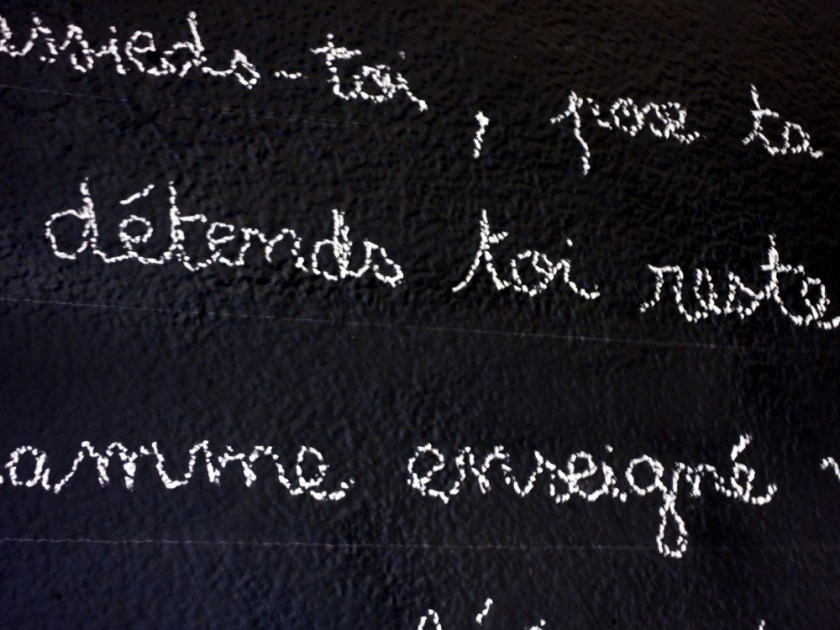 assieds-toi, pose ta
détends toi reste
enseigné